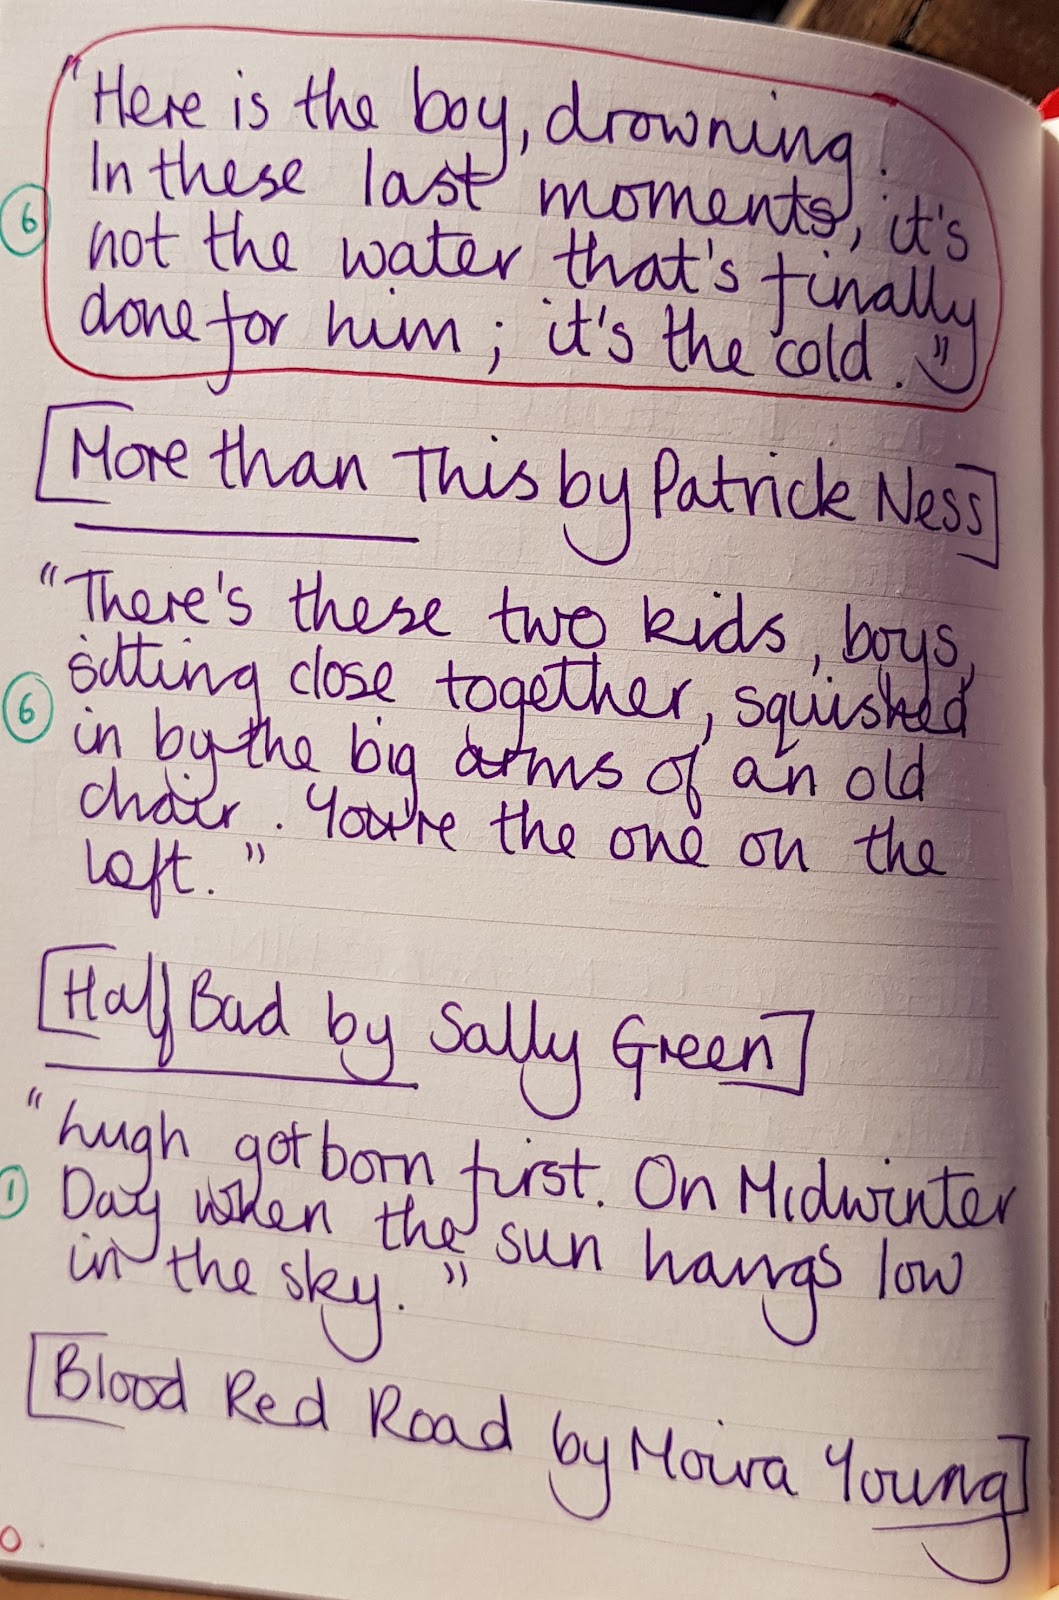 "Here is the boy, drowning.
In these last moments, it's
6
not the water that's finally
done for him; it's the cold."
[More than This by Patrick Ness]
"There's these two kids, boys,
sitting close together, squished
6
in by the big arms of an old
chair. You're the one on the
left."
[Half Bad by Sally Green]
"Lugh got born first. On Midwinter
1
Day when the sun hangs low
in the sky."
[Blood Red Road by Moira Young]